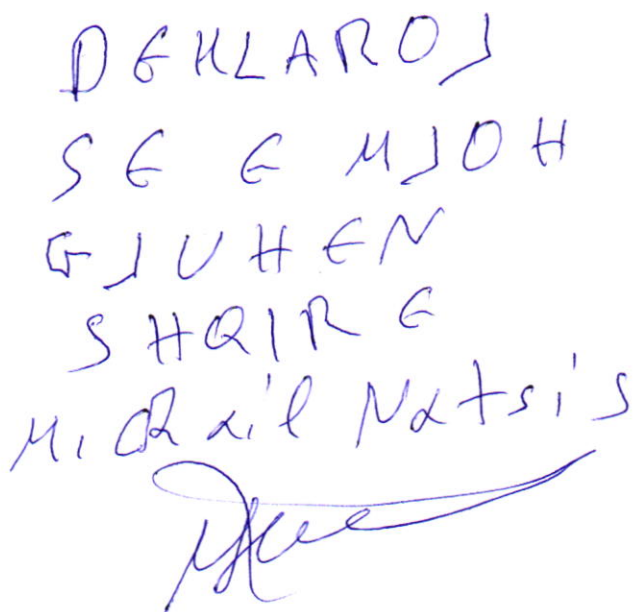 DEKLAROJ
SE E NJOH
GJUHEN
SHQIRE
Michail Natsis